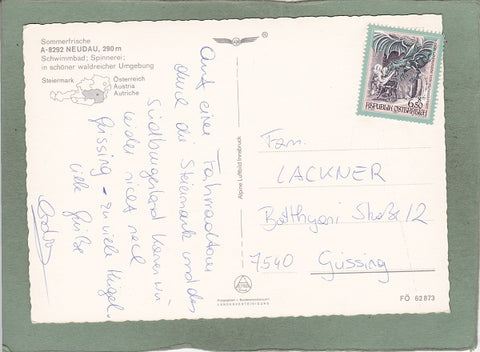 Sommerfrische
A-8292 NEUDAU, 290 m
Schwimmbad; Spinnerei;
in schöner waldreicher Umgebung
Steiermark
Österreich
Austria
Autriche
Auf einer Fahrradtour
durch die Steiermark und das
Südburgenland kamen wir
leider nicht nach
Güssing - zu viele Hügel.
Viele Grüße
Alpine Luftbild Innsbruck
REPUBLIK ÖSTERREICH
6.50
Fam.
LACKNER
Batthyani Straße 12
7540 Güssing
FÖ 62873